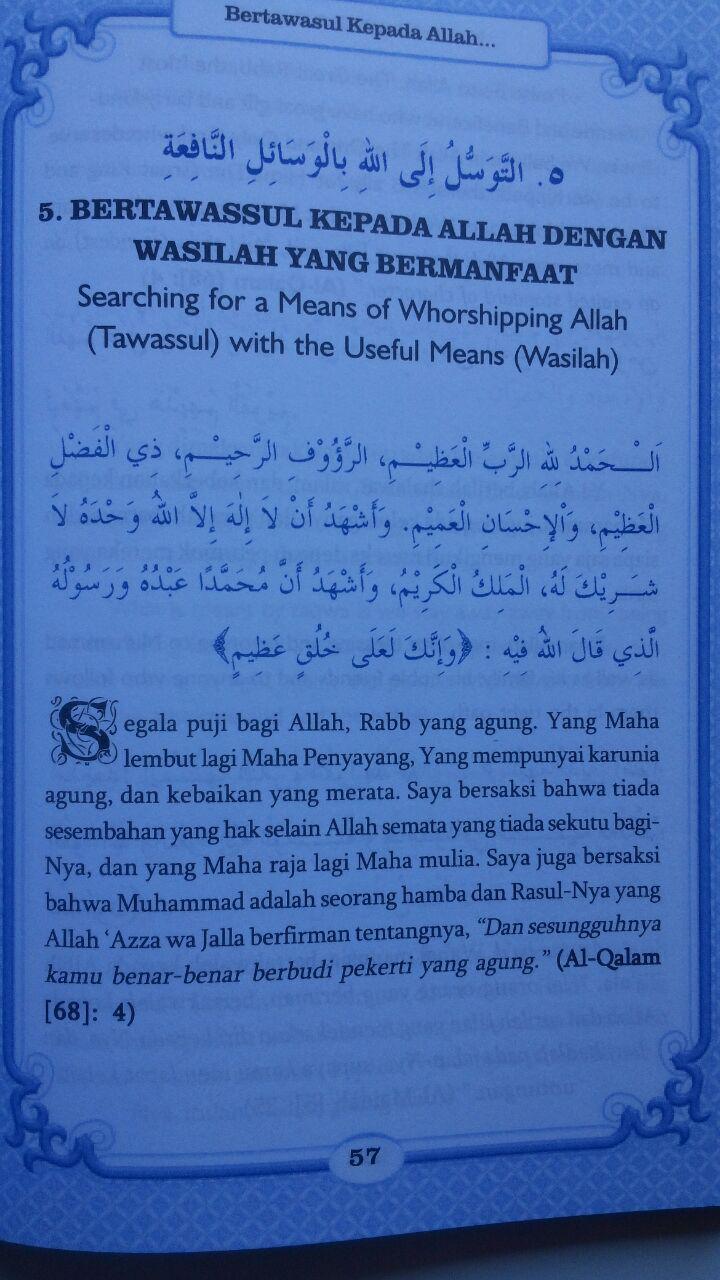 Bertawasul Kepada Allah...
٥. التَّوَسُّلُ إِلَى اللهِ بِالْوَسَائِلِ النَّافِعَةِ
5. BERTAWASSUL KEPADA ALLAH DENGAN
WASILAH YANG BERMANFAAT
Searching for a Means of Whorshipping Allah
(Tawassul) with the Useful Means (Wasilah)
اَلْـــحَمْدُ لِلهِ الرَّبِّ الْعَظِيْـــمِ، الرَّؤُوْفِ الرَّحِيْـــمِ، ذِي الْفَضْلِ
الْعَظِيْمِ، وَاْلإِحْسَانِ الْعَمِيْمِ. وَأَشْهَدُ أَنْ لاَ إِلٰهَ إِلاَّ اللهُ وَحْدَهُ لاَ
شَـــرِيْكَ لَهُ، الْمَلِكُ الْكَرِيْمُ، وَأَشْهَدُ أَنَّ مُحَمَّدًا عَبْدُهُ وَرَسُوْلُهُ
الَّذِي قَالَ اللهُ فِيْهِ : ﴿وَإِنَّكَ لَعَلَى خُلُقٍ عَظِيمٍ﴾
Segala puji bagi Allah, Rabb yang agung. Yang Maha
lembut lagi Maha Penyayang, Yang mempunyai karunia
agung, dan kebaikan yang merata. Saya bersaksi bahwa tiada
sesembahan yang hak selain Allah semata yang tiada sekutu bagi-
Nya, dan yang Maha raja lagi Maha mulia. Saya juga bersaksi
bahwa Muhammad adalah seorang hamba dan Rasul-Nya yang
Allah ‘Azza wa Jalla berfirman tentangnya, “Dan sesungguhnya
kamu benar-benar berbudi pekerti yang agung.” (Al-Qalam
[68]: 4)
57